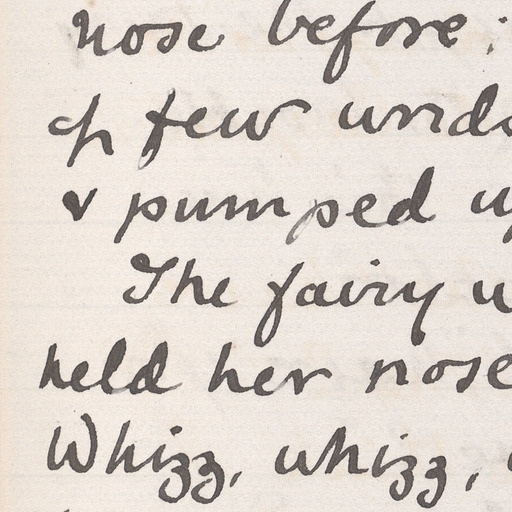 nose before;
of few words
& pumped up
The fairy w
held her nose
Whizz, whizz,